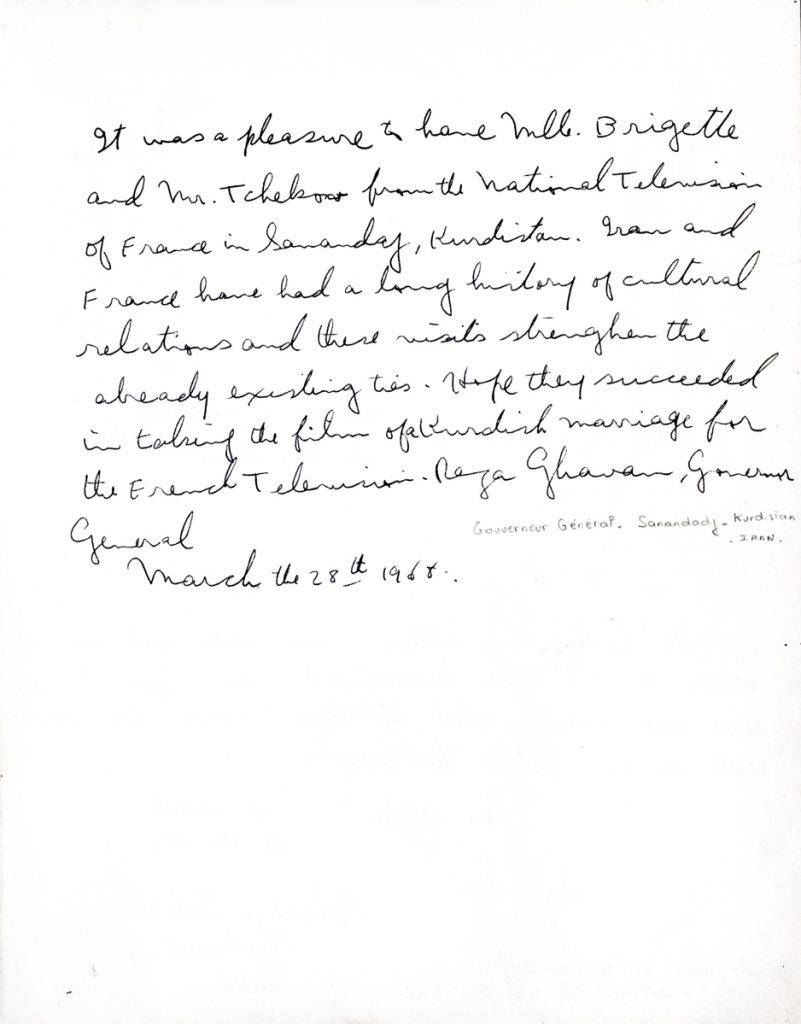 It was a pleasure to have Mlle. Brigette
and Mr. Tchekow from the National Television
of France in Sanandaj, Kurdistan. Iran and
France have had a long history of cultural
relations and these visits strenghen the
already existing ties. Hope they succeeded
in taking the film of a Kurdish marriage for
the French Television. Reza Ghavam, Governor
General
Gouverneur Général. Sanandadj - Kurdistan
. IRAN.
March the 28th 1968.